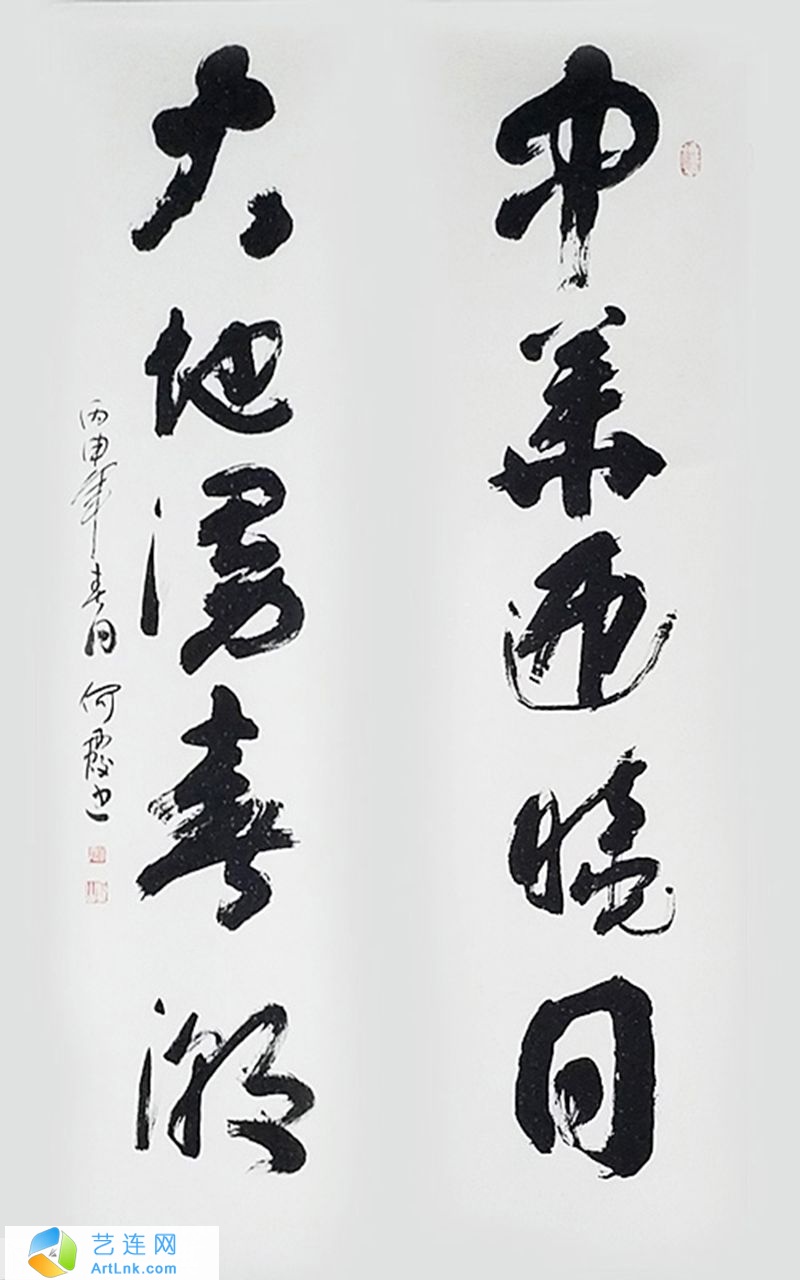 中華迎曉日
大地湧春潮
丙申年春日 何 书
艺连网
ArtLnk.com